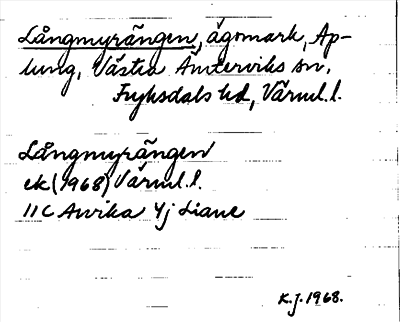 Långmyrängen, ägomark, Ap-
lung, Västra Ämterviks sn,
Fryksdals hd, Värml.l.
Långmyrängen
ek (1968) Värml.l.
11C Arvika 4j Liane
K.J. 1968.